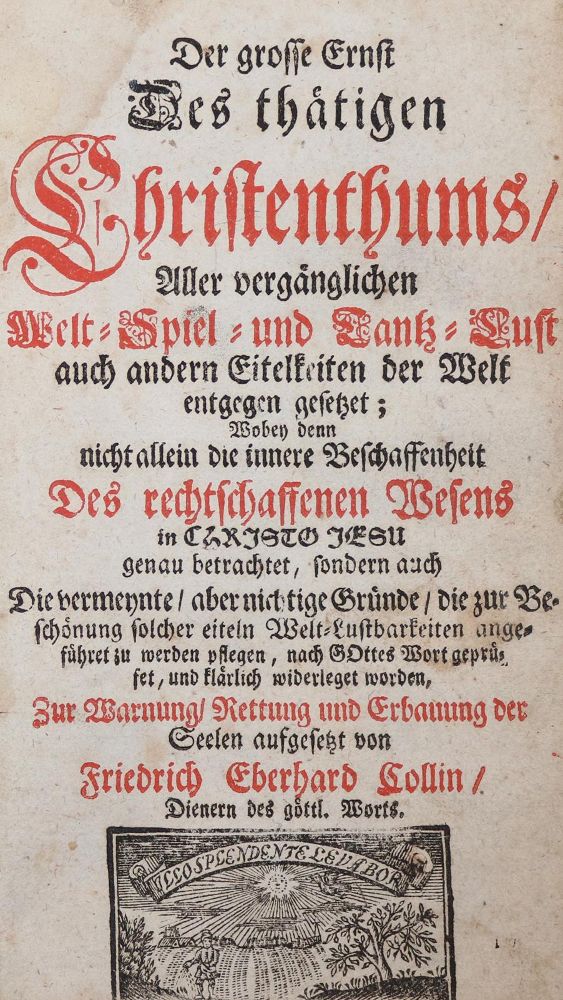 Der grosse Ernst
Des thätigen
Christenthums/
Aller vergänglichen
Welt-Spiel-und Tantz-Lust
auch andern Eitelkeiten der Welt
entgegen gesetzet;
Wobey denn
nicht allein die innere Beschaffenheit
Des rechtschaffenen Wesens
in CHRISTO JESU
genau betrachtet, sondern auch
Die vermeynte/ aber nichtige Gründe/ die zur Be-
schönung solcher eiteln Welt-Lustbarkeiten ange-
führet zu werden pflegen, nach GOttes Wort geprü-
fet, und klärlich widerleget worden,
Zur Warnung/ Rettung und Erbauung der
Seelen aufgesetzt von
Friedrich Eberhard Collin/
Dienern des göttl. Worts.
ILLO SPLENDENTE LEVABOR